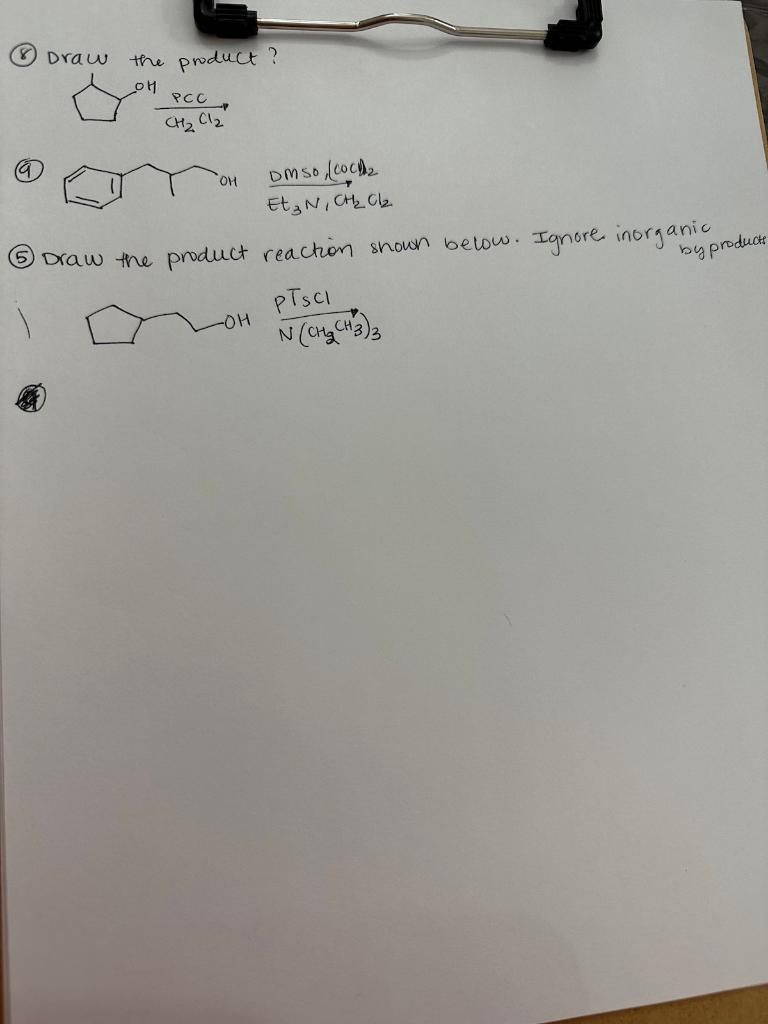 ⑧ Draw the product ?
OH
PCC
CH2 Cl2
⑨
OH
DMSO, (COCl)2
Et3N, CH2Cl2
⑤ Draw the product reaction shown below. Ignore inorganic
by products
OH
pTsCl
N(CH2CH3)3